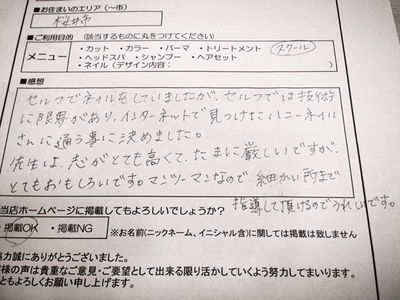 ■お住まいのエリア（～市）
桜井市
■ご利用目的　（該当するものに丸をつけてください）
メニュー
・カット　・カラー　・パーマ　・トリートメント　スクール
・ヘッドスパ　・シャンプー　・ヘアセット
・ネイル（デザイン内容：
■感想
セルフでネイルをしていましたが、セルフでは技術
に限界があり、インターネットで見つけたハニーネイル
さんに通う事に決めました。
先生は、志がとても高くて、たまに厳しいですが、
とてもおもしろいです。マンツーマンなので細かい所まで
指導して頂けるのでうれしいです。
当店ホームページに掲載してもよろしいでしょうか？
・掲載OK　・掲載NG　※お名前(ニックネーム、イニシャル含)に関しては掲載は致しません
協力誠にありがとうございました。
様の声は貴重なご意見・ご要望として出来る限り活かしていくよう努力してまいります。
ともよろしくお願い申し上げます